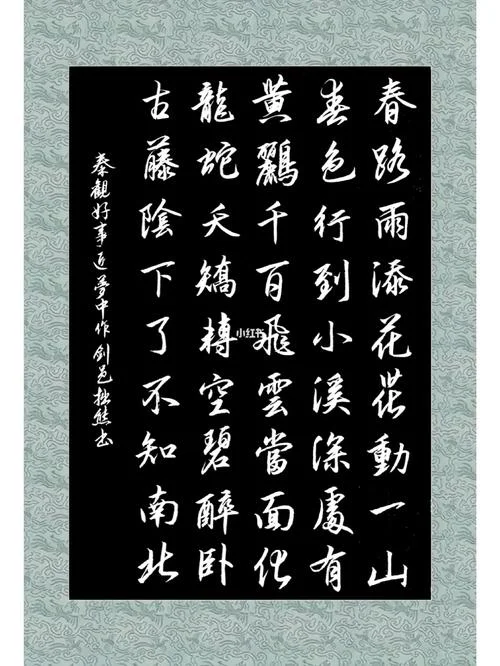 春路雨添花花動一山
春色行到小溪深處有
黃鸝千百飛雲當面化
龍蛇夭矯轉空碧醉卧
古藤陰下了不知南北
秦觀好事近夢中作剑邑熊书
小红书